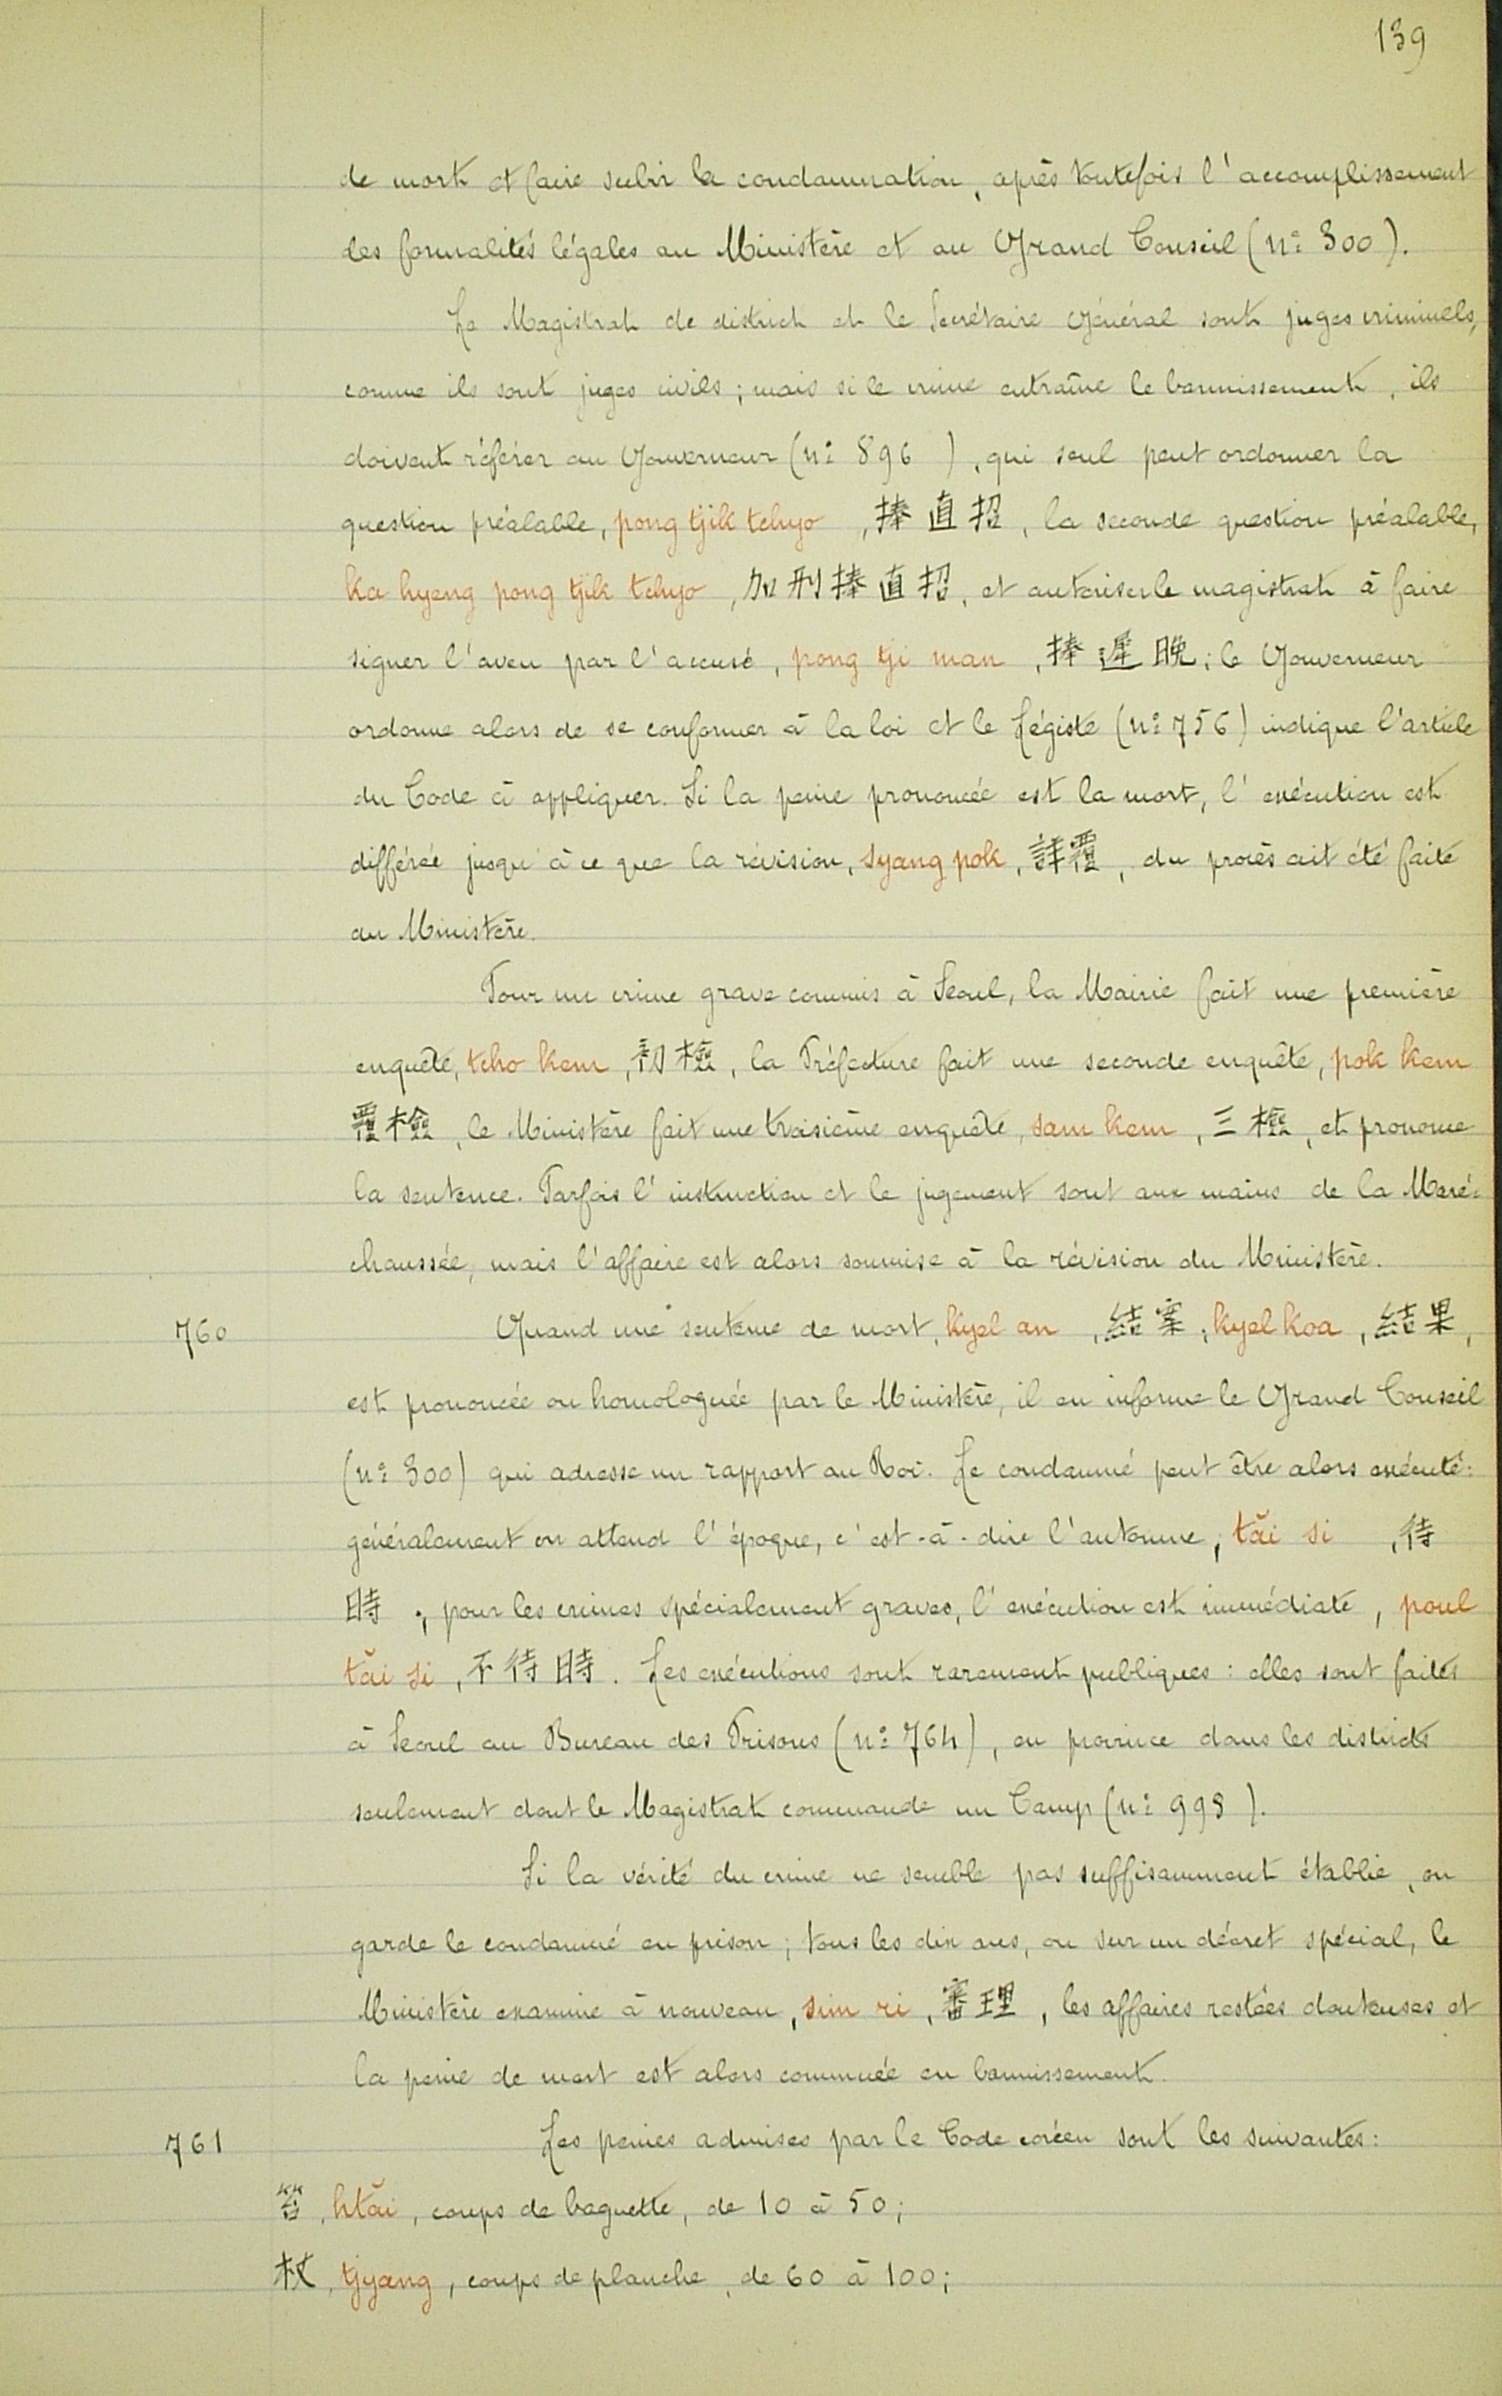 139
de mort et faire subir la condamnation, après toutefois l'accomplissement
des formalités légales au Ministère et au Grand Conseil (n° 300).
Le Magistrat de district et le Secrétaire Général sont juges criminels,
comme ils sont juges civils ; mais si le crime entraîne le bannissement, ils
doivent référer au Gouverneur (n° 896 ), qui seul peut ordonner la
question préalable, pong tjik tchyo , 捧直招, la seconde question préalable,
ka hyeng pong tjik tchyo , 加刑捧直招, et autoriser le magistrat à faire
signer l'aveu par l'accusé, pong tji man , 捧遲晩 ; le Gouverneur
ordonne alors de se conformer à la loi et le Légiste (n° 756) indique l'article
du Code à appliquer. Si la peine prononcée est la mort, l'exécution est
différée jusqu'à ce que la révision, syang pok, 詳覆, du procès ait été faite
au Ministère.
Pour un crime grave commis à Seoul, la Mairie fait une première
enquête, tcho kem, 初檢, la Préfecture fait une seconde enquête, pok kem
覆檢, le Ministère fait une troisième enquête, sam kem, 三檢, et prononce
la sentence. Parfois l'instruction et le jugement sont aux mains de la Maré-
chaussée, mais l'affaire est alors soumise à la révision du Ministère.
760 Quand une sentence de mort, kyel an , 結案 ; kyel koa, 結果,
est prononcée ou homologuée par le Ministère, il en informe le Grand Conseil
(n° 300) qui adresse un rapport au Roi. Le condamné peut être alors exécuté :
généralement on attend l'époque, c'est-à-dire l'automne, tăi si , 待
時 ; pour les crimes spécialement graves, l'exécution est immédiate, poul
tăi si, 不待時. Les exécutions sont rarement publiques : elles sont faites
à Seoul au Bureau des Prisons (n° 764), en province dans les districts
seulement dont le Magistrat commande un Camp (n° 998 ).
Si la vérité du crime ne semble pas suffisamment établie, on
garde le condamné en prison ; tous les dix ans, ou sur un décret spécial, le
Ministère examine à nouveau, sim ri, 審理, les affaires restées douteuses et
la peine de mort est alors commuée en bannissement.
761 Les peines admises par le Code coréen sont les suivantes :
笞, htăi, coups de baguette, de 10 à 50 ;
杖, tjyang, coups de planche, de 60 à 100 ;